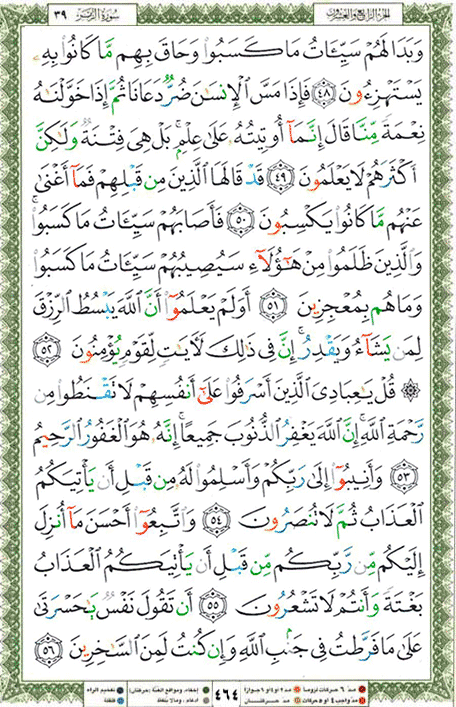 الجزء الرابع والعشرون سورة الزمر ٣٩
وَبَدَا لَهُمْ سَيِّئَاتُ مَا كَسَبُوا۟ وَحَاقَ بِهِم مَّا كَانُوا۟ بِهِۦ
يَسْتَهْزِءُونَ ٤٨ فَإِذَا مَسَّ ٱلْإِنسَٰنَ ضُرٌّ دَعَانَا ثُمَّ إِذَا خَوَّلْنَٰهُ
نِعْمَةً مِّنَّا قَالَ إِنَّمَآ أُوتِيتُهُۥ عَلَىٰ عِلْمٍۭ ۚ بَلْ هِىَ فِتْنَةٌ وَلَٰكِنَّ
أَكْثَرَهُمْ لَا يَعْلَمُونَ ٤٩ قَدْ قَالَهَا ٱلَّذِينَ مِن قَبْلِهِمْ فَمَآ أَغْنَىٰ
عَنْهُم مَّا كَانُوا۟ يَكْسِبُونَ ٥٠ فَأَصَابَهُمْ سَيِّئَاتُ مَا كَسَبُوا۟ ۚ
وَٱلَّذِينَ ظَلَمُوا۟ مِنْ هَٰٓؤُلَآءِ سَيُصِيبُهُمْ سَيِّئَاتُ مَا كَسَبُوا۟
وَمَا هُم بِمُعْجِزِينَ ٥١ أَوَلَمْ يَعْلَمُوٓا۟ أَنَّ ٱللَّهَ يَبْسُطُ ٱلرِّزْقَ
لِمَن يَشَآءُ وَيَقْدِرُ ۚ إِنَّ فِى ذَٰلِكَ لَءَايَٰتٍ لِّقَوْمٍ يُؤْمِنُونَ ٥٢
۞ قُلْ يَٰعِبَادِىَ ٱلَّذِينَ أَسْرَفُوا۟ عَلَىٰٓ أَنفُسِهِمْ لَا تَقْنَطُوا۟ مِن
رَّحْمَةِ ٱللَّهِ ۚ إِنَّ ٱللَّهَ يَغْفِرُ ٱلذُّنُوبَ جَمِيعًا ۚ إِنَّهُۥ هُوَ ٱلْغَفُورُ ٱلرَّحِيمُ
٥٣ وَأَنِيبُوٓا۟ إِلَىٰ رَبِّكُمْ وَأَسْلِمُوا۟ لَهُۥ مِن قَبْلِ أَن يَأْتِيَكُمُ
ٱلْعَذَابُ ثُمَّ لَا تُنصَرُونَ ٥٤ وَٱتَّبِعُوٓا۟ أَحْسَنَ مَآ أُنزِلَ
إِلَيْكُم مِّن رَّبِّكُم مِّن قَبْلِ أَن يَأْتِيَكُمُ ٱلْعَذَابُ
بَغْتَةً وَأَنتُمْ لَا تَشْعُرُونَ ٥٥ أَن تَقُولَ نَفْسٌ يَٰحَسْرَتَىٰ
عَلَىٰ مَا فَرَّطتُ فِى جَنۢبِ ٱللَّهِ وَإِن كُنتُ لَمِنَ ٱلسَّٰخِرِينَ ٥٦
مدّ ٦ حركات لزوماً مدّ ٢ أو ٤ أو ٦ جوازاً إخفاء، ومواقع الغنّة (حركتان) تفخيم الراء
مدّ واجب ٤ أو ٥ حركات مدّ حركتان ٤٦٤ إدغام، وما لا يُلفظ قلقلة